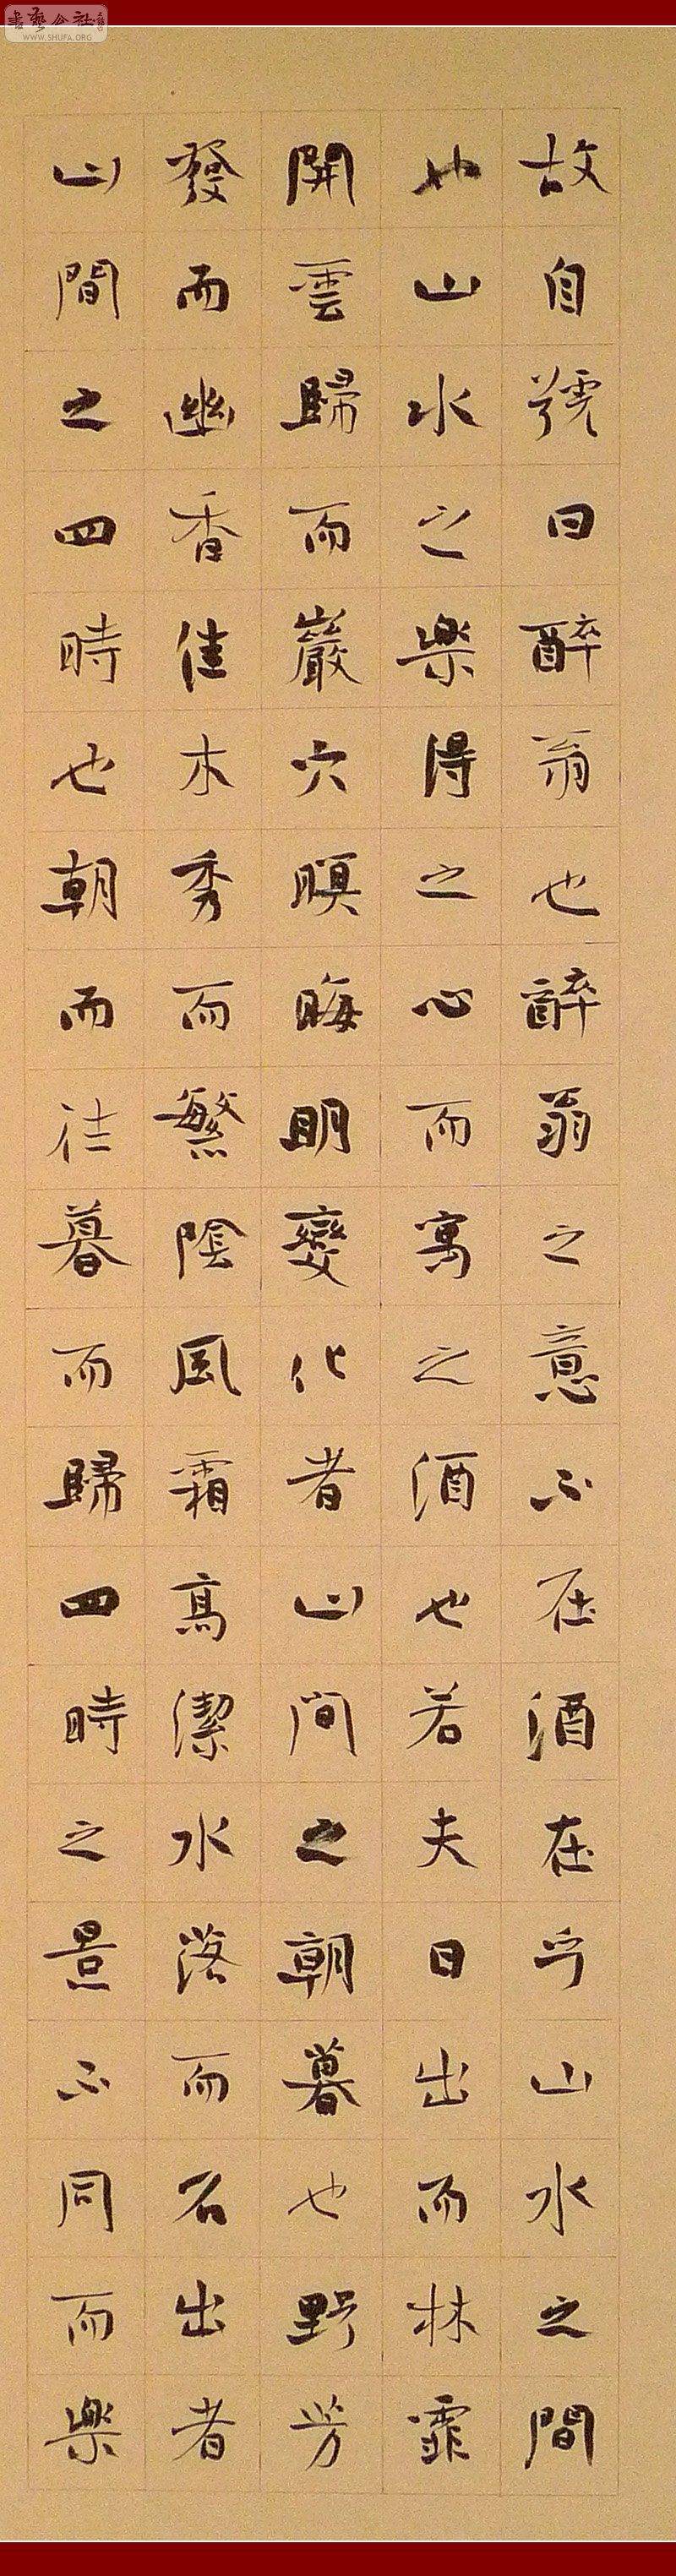 書藝公社
WWW.SHUFA.ORG
故自號曰醉翁也醉翁之意不在酒在乎山水之間
也山水之樂得之心而寓之酒也若夫日出而林霏
開雲歸而巖穴暝晦明變化者山間之朝暮也野芳
發而幽香佳木秀而繁陰風霜高潔水落而石出者
山間之四時也朝而往暮而歸四時之景不同而樂